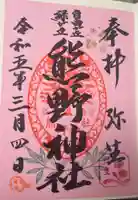 奉拝 弥生
熊野神社
令和五年三月四日